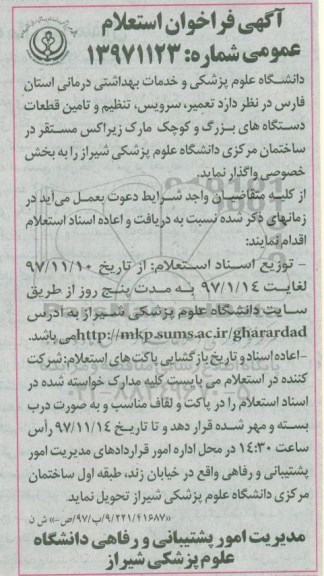 آگهی فراخوان استعلام
عمومی شماره: ۱۳۹۷۱۱۲۳
دانشگاه علوم پزشکی و خدمات بهداشتی درمانی استان
فارس در نظر دارد تعمیر، سرویس، تنظیم و تامین قطعات
دستگاه های بزرگ و کوچک مارک زیراکس مستقر در
ساختمان مرکزی دانشگاه علوم پزشکی شیراز را به بخش
خصوصی واگذار نماید.
از کلیه متقاضیان واجد شرایط دعوت بعمل می‌آید در
زمانهای ذکر شده نسبت به دریافت و اعاده اسناد استعلام
اقدام نمایند:
- توزیع اسناد استعلام: از تاریخ ۹۷/۱۱/۱۰
لغایت ۹۷/۱/۱۴ به مدت پنج روز از طریق
سایت دانشگاه علوم پزشکی شیراز به ادرس
http://mkp.sums.ac.ir/gharardad می باشد.
-اعاده اسناد و تاریخ بازگشایی پاکت های استعلام: شرکت
کننده در استعلام می بایست کلیه مدارک خواسته شده در
اسناد استعلام را در پاکت و لفاف مناسب و به صورت درب
بسته و مهر شده قرار دهد و تا تاریخ ۹۷/۱۱/۱۴ رأس
ساعت ۱۴:۳۰ در محل اداره امور قراردادهای مدیریت امور
پشتیبانی و رفاهی واقع در خیابان زند، طبقه اول ساختمان
مرکزی دانشگاه علوم پزشکی شیراز تحویل نماید.
«۹/۲۲۱/۴۱۶۸۷/ب/۹۷/ص-» ش ن
مدیریت امور پشتیبانی و رفاهی دانشگاه
علوم پزشکی شیراز